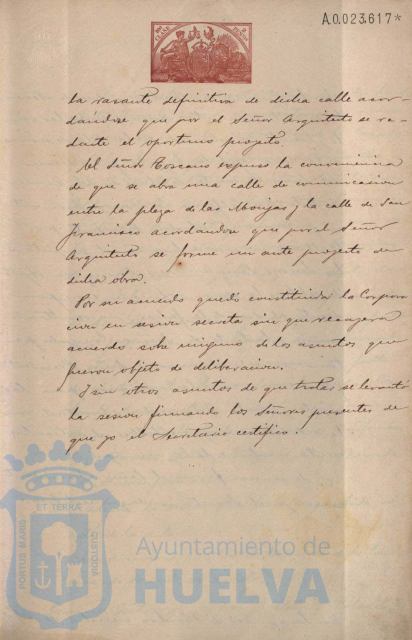 A.0.023.617*
la rasante definitiva de dicha calle acor-
dándose que por el Señor Arquitecto se re-
dante el oportuno proyecto.
El Señor Toscano expuso la conveniencia
de que se abra una calle de comunicacion
entre la plaza de las Monjas y la calle de San
Francisco acordándose que por el Señor
Arquitecto se forme un ante proyecto de
dicha obra.
Por su acuerdo quedó constituida la Corpora
cion en sesion secreta sin que recayera
acuerdo sobre ninguno de los asuntos que
fueron objeto de deliberacion.
Y sin otros asuntos de que tratar se levantó
la sesion firmando los Señores presentes de
que yo el Secretario certifico.
PORTUS MARIS
ET TERRÆ
CUSTODIA
Ayuntamiento de
HUELVA